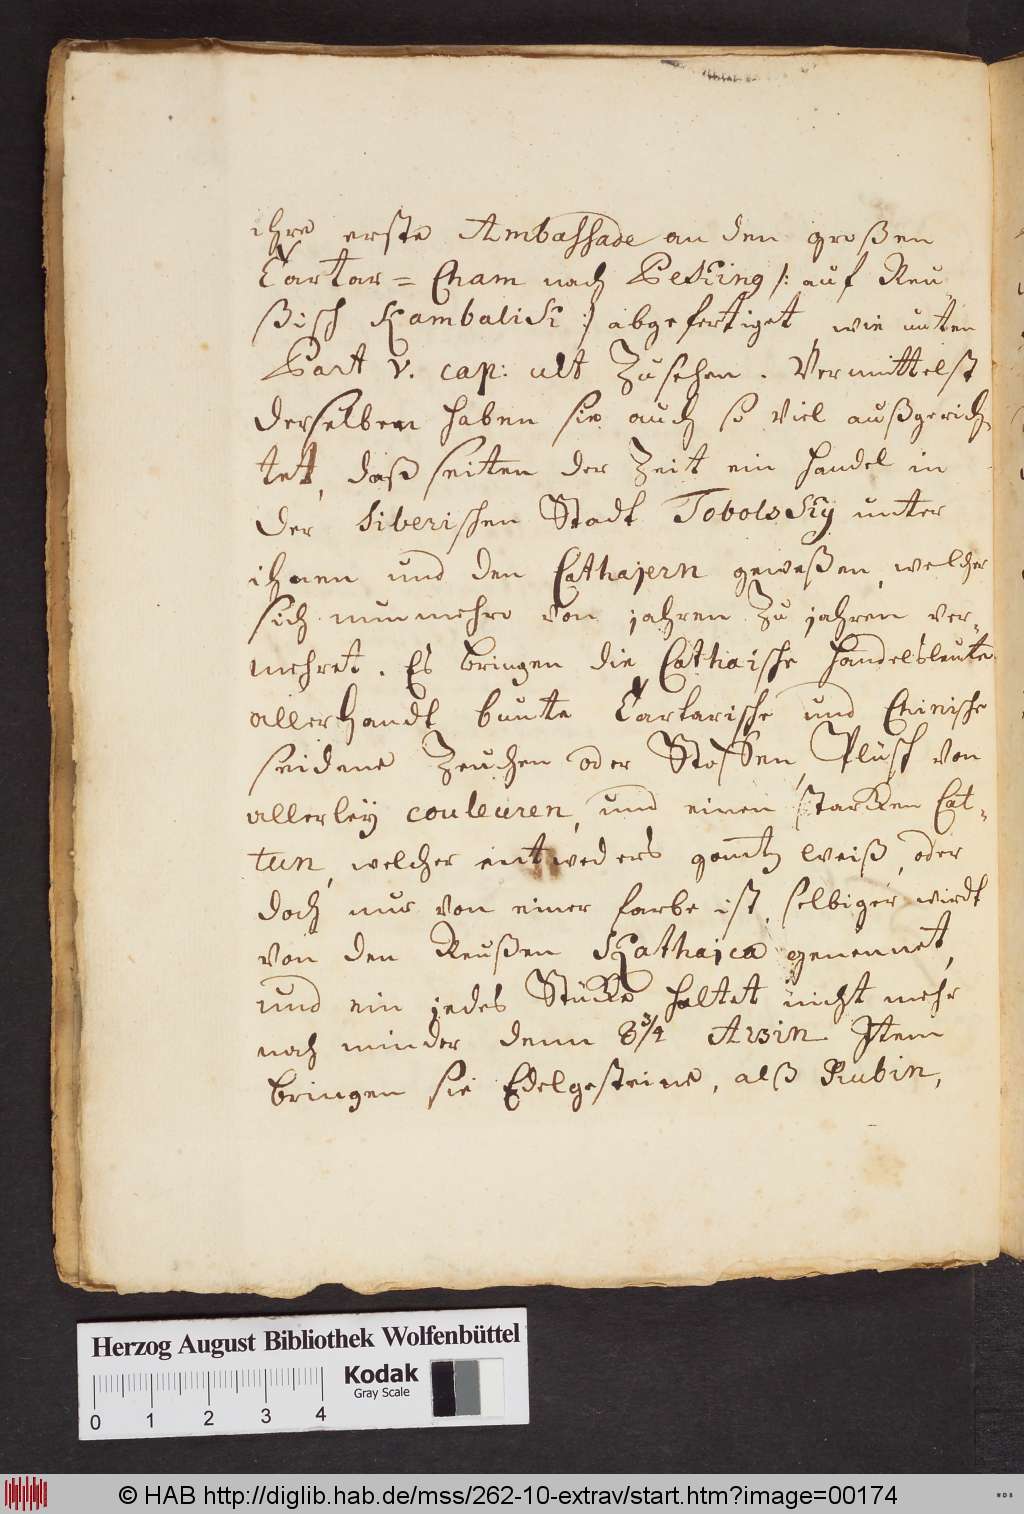 ihre erste Ambassade an den großen
Tartar = Cham nach Peking /: auf Reu
ßisch Kambaliki :/ abgefertiget, wie unten
Part V. cap: ult zusehen. Vermittelst
derselben haben sie auch so viel außgerich
tet, daß seiten der Zeit ein Handel in
der Siberischen Stadt Tobolsky unter
ihnen und den Cathajern geweßen, welcher
sich nunmehro von jahren zu jahren ver-
mehret. Es bringen die Cathaische Handelsleute
allerhandt bunte Tartarische und Chinische
seidene Zeuchen oder Stoffen, Plüsch von
allerleÿ couleuren, und einen starken Cat-
tun, welcher entweders gantz weiß, oder
doch nur von einer farbe ist, selbiger wirdt
von den Reußen Kathajca genennet,
und ein jedes Stücke haltet nicht mehr
noch minder denn 8 3/4 Arsin. Item
bringen sie Edelgesteine, alß Rubin,
Herzog August Bibliothek Wolfenbüttel
Kodak
Gray Scale
0 1 2 3 4
© HAB http://diglib.hab.de/mss/262-10-extrav/start.htm?image=00174